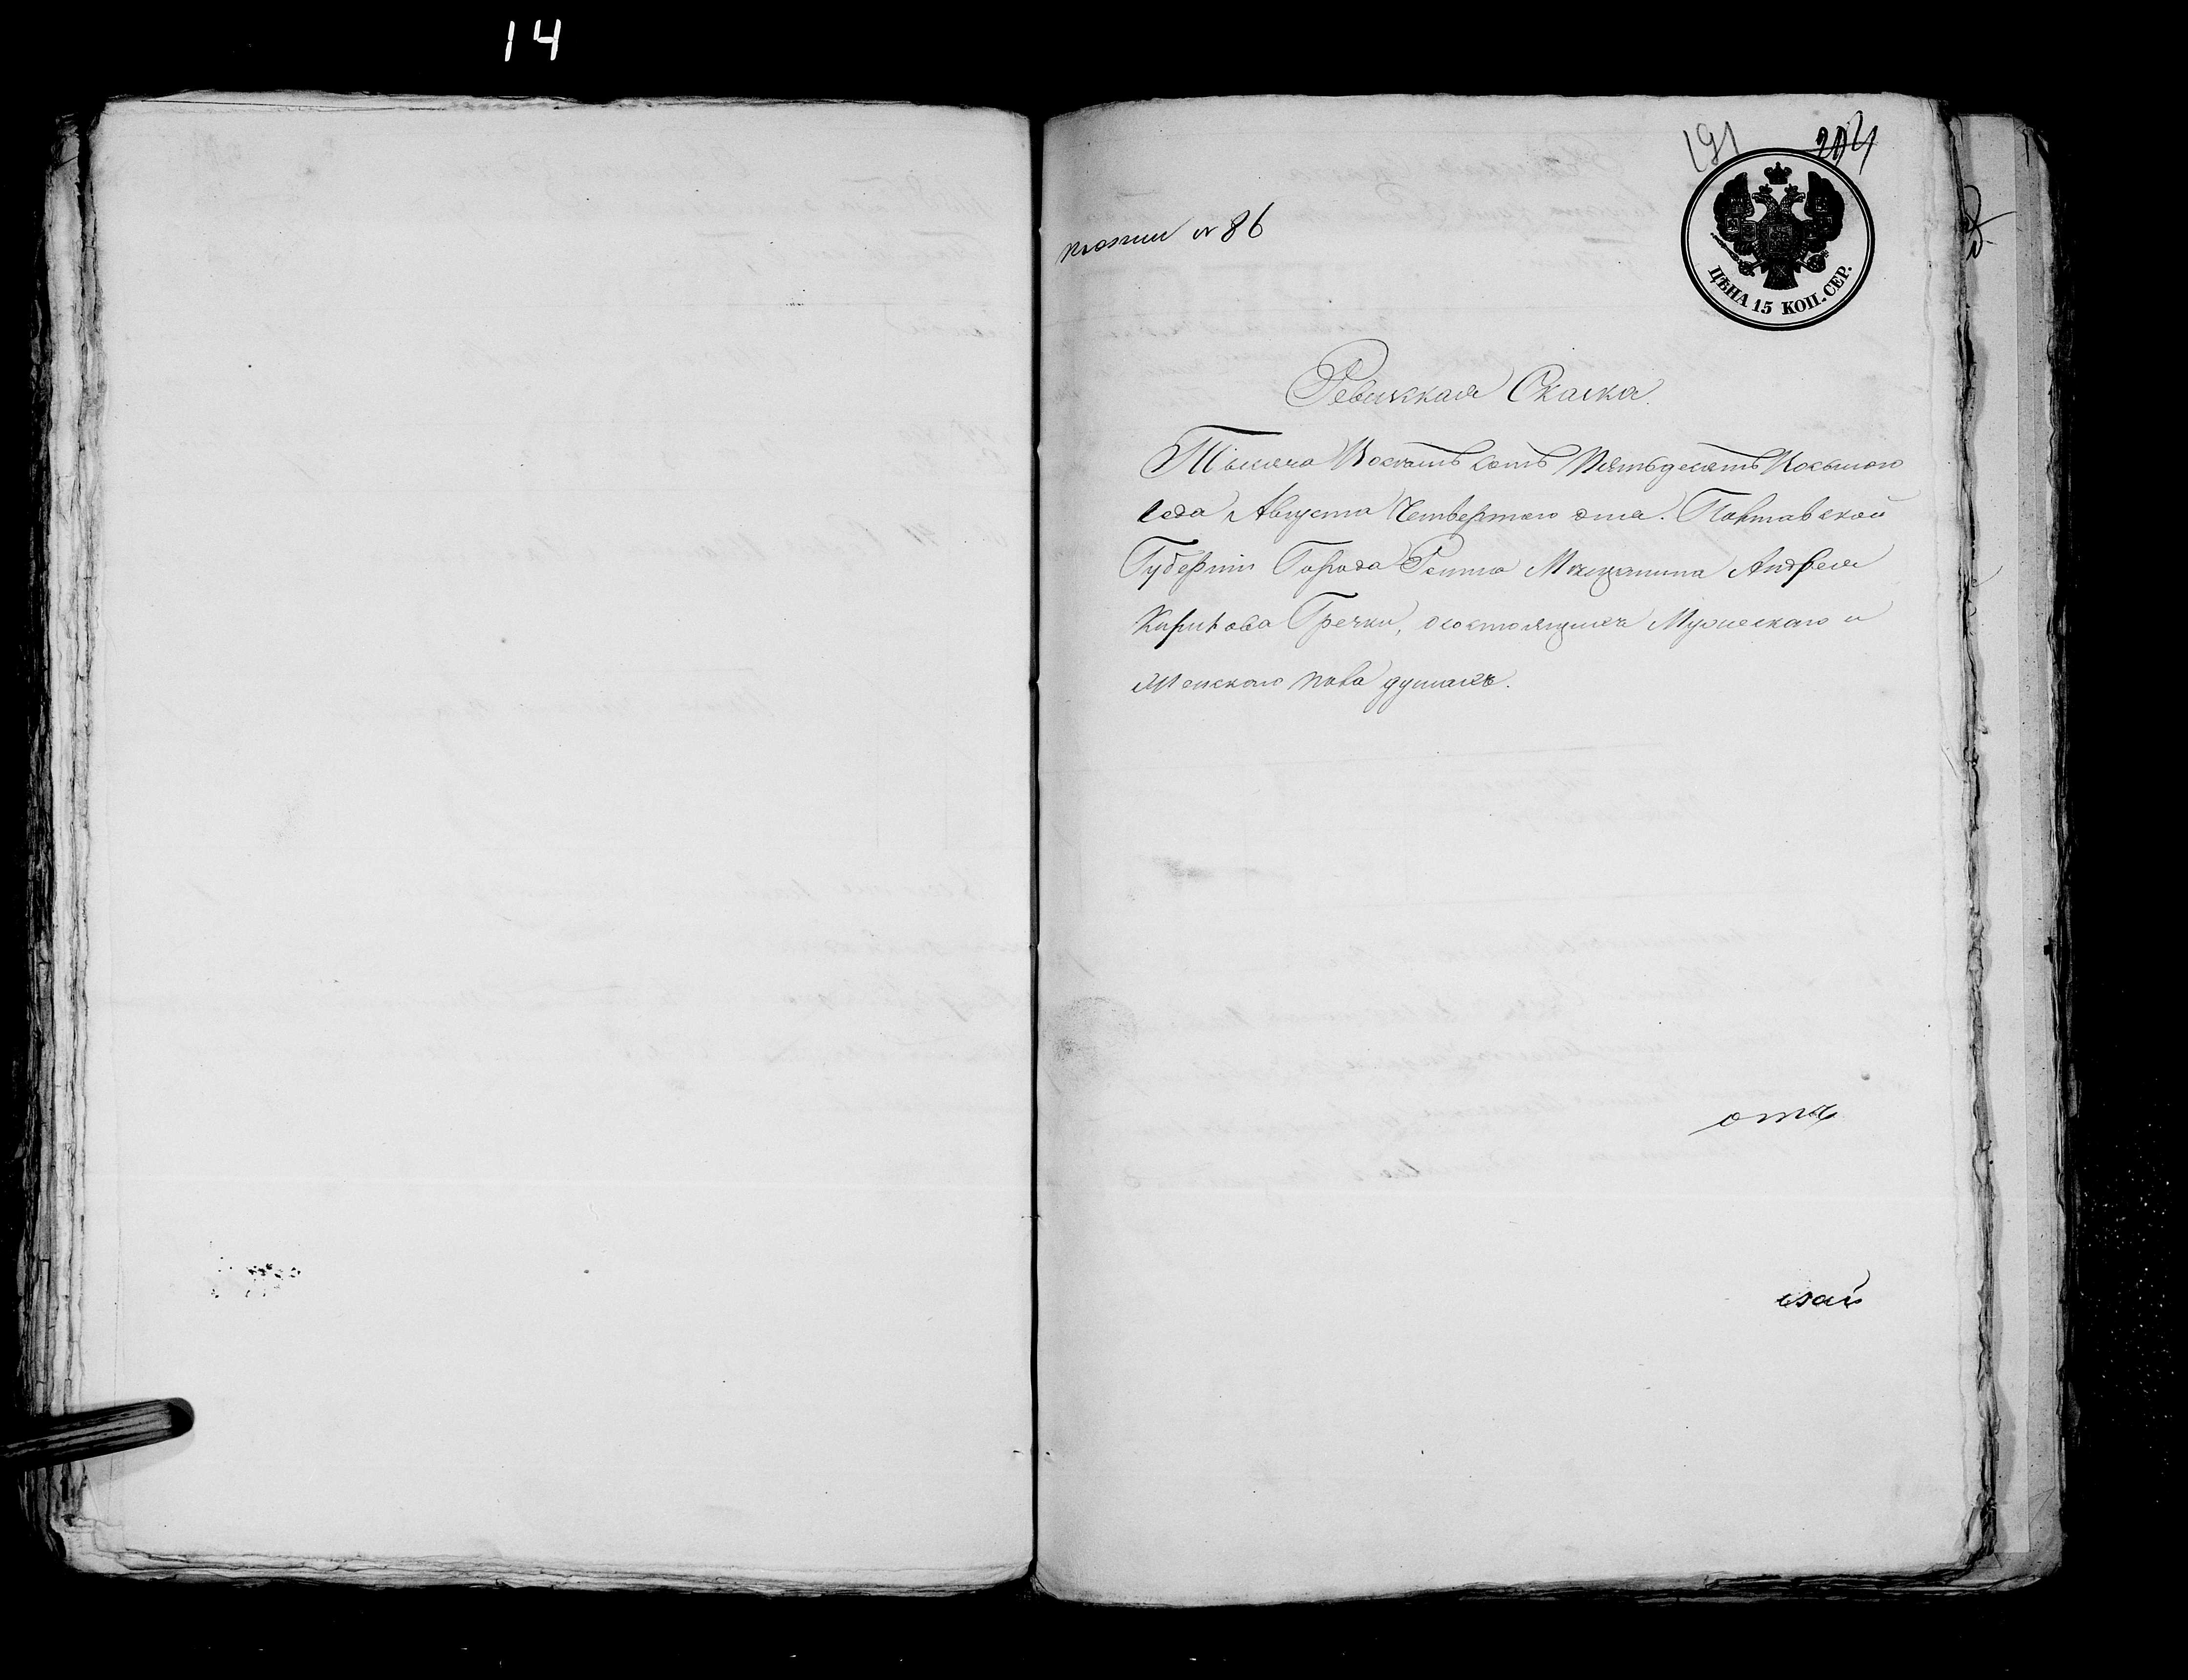 14
191 204
№ 86
ЦѢНА 15 КОП. СЕР.
Ревизская Сказка.
Тысяча Восемь сотъ Пятьдесятъ Восьмого
Года Августа Четвертого дня. Полтавской
Губерніи Города Ромна Мѣщанина Андрея
Кирилова Гречки, о состоящихъ Мужескаго и
Женскаго пола душахъ.
отъ